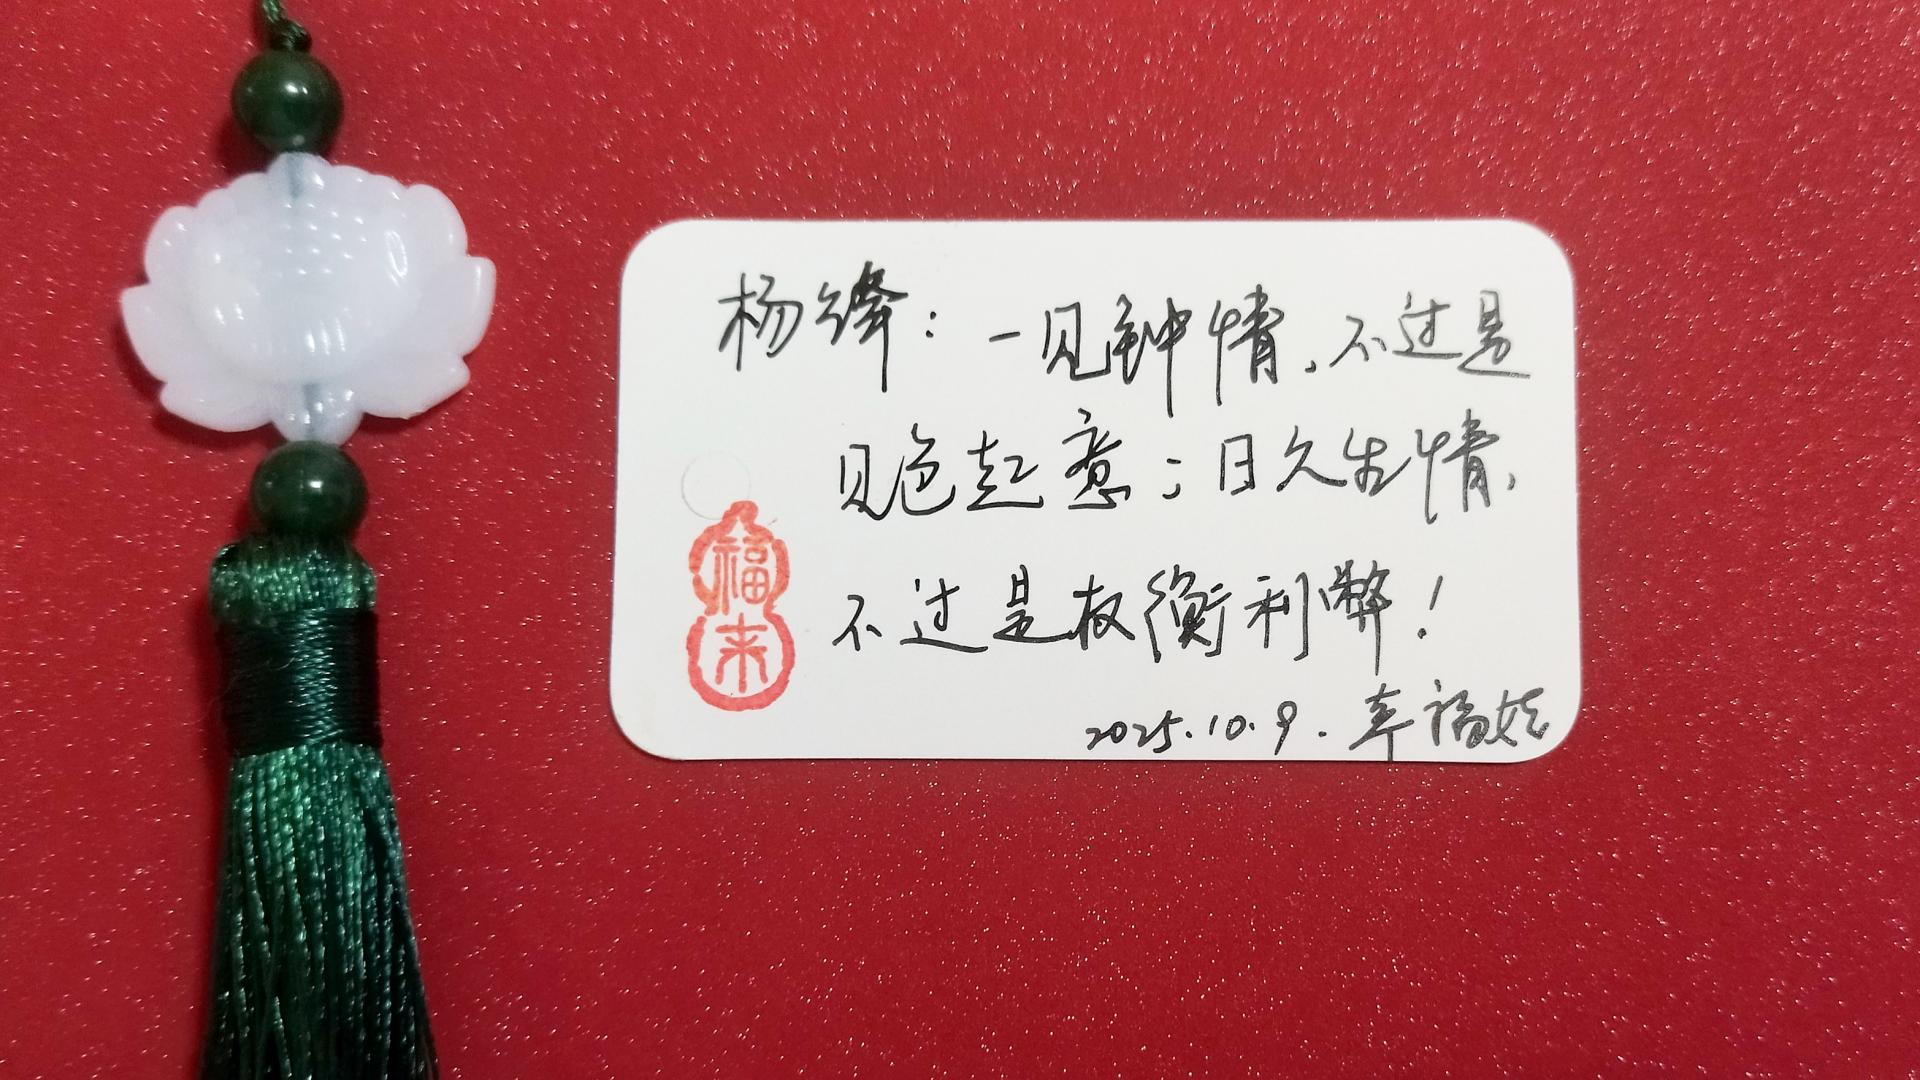 杨绛：一见钟情，不过是
见色起意；日久生情，
不过是权衡利弊！
2025.10.9.幸福娃
福
来